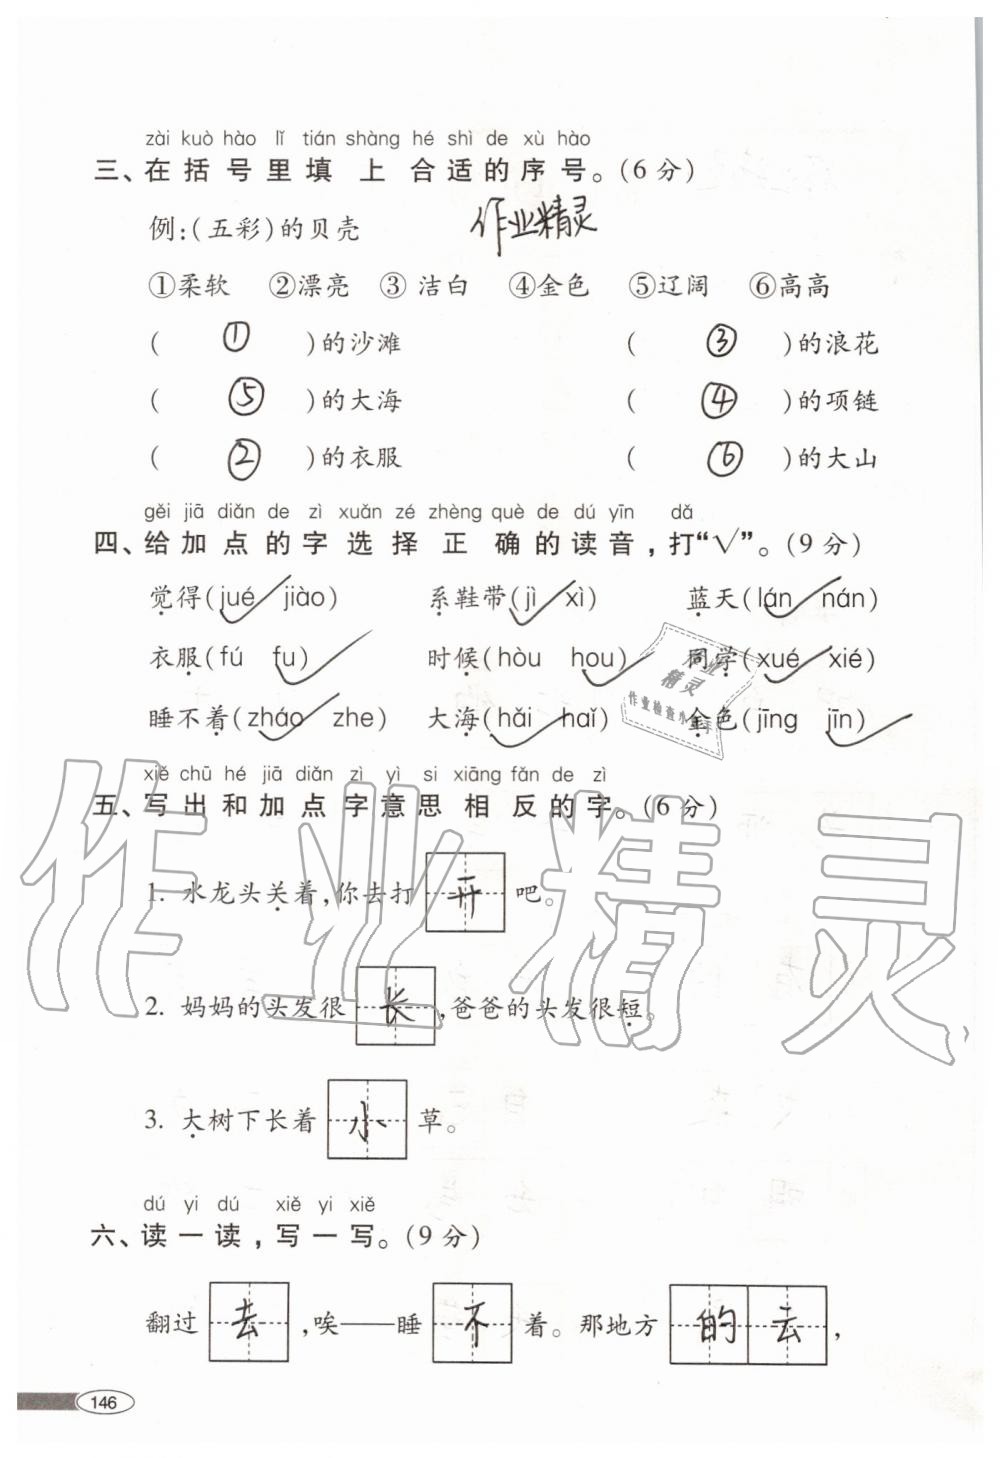 zài kuò hào lǐ tián shàng hé shì de xù hào
三、在括号里填上合适的序号。(6分)
例:(五彩)的贝壳 作业精灵
①柔软 ②漂亮 ③ 洁白 ④金色 ⑤辽阔 ⑥高高
( ① )的沙滩 ( ③ )的浪花
( ⑤ )的大海 ( ④ )的项链
( ② )的衣服 ( ⑥ )的大山
gěi jiā diǎn de zì xuǎn zé zhèng què de dú yīn dǎ
四、给加点的字选择正确的读音,打“√”。(9分)
觉得(jué✓ jiào) 系鞋带(jì✓ xì) 蓝天(lán✓ nán)
衣服(fú fu✓) 时候(hòu hou✓) 同学(xué✓ xié)
睡不着(zháo✓ zhe) 大海(hǎi✓ haǐ) 金色(jīng jīn✓)
xiě chū hé jiā diǎn zì yì si xiāng fǎn de zì
五、写出和加点字意思相反的字。(6分)
1. 水龙头关着,你去打开吧。
2. 妈妈的头发很长,爸爸的头发很短。
3. 大树下长着小草。
dú yi dú xiě yi xiě
六、读一读,写一写。(9分)
翻过去,唉——睡不着。那地方的去,
146
作业精灵
作业精灵